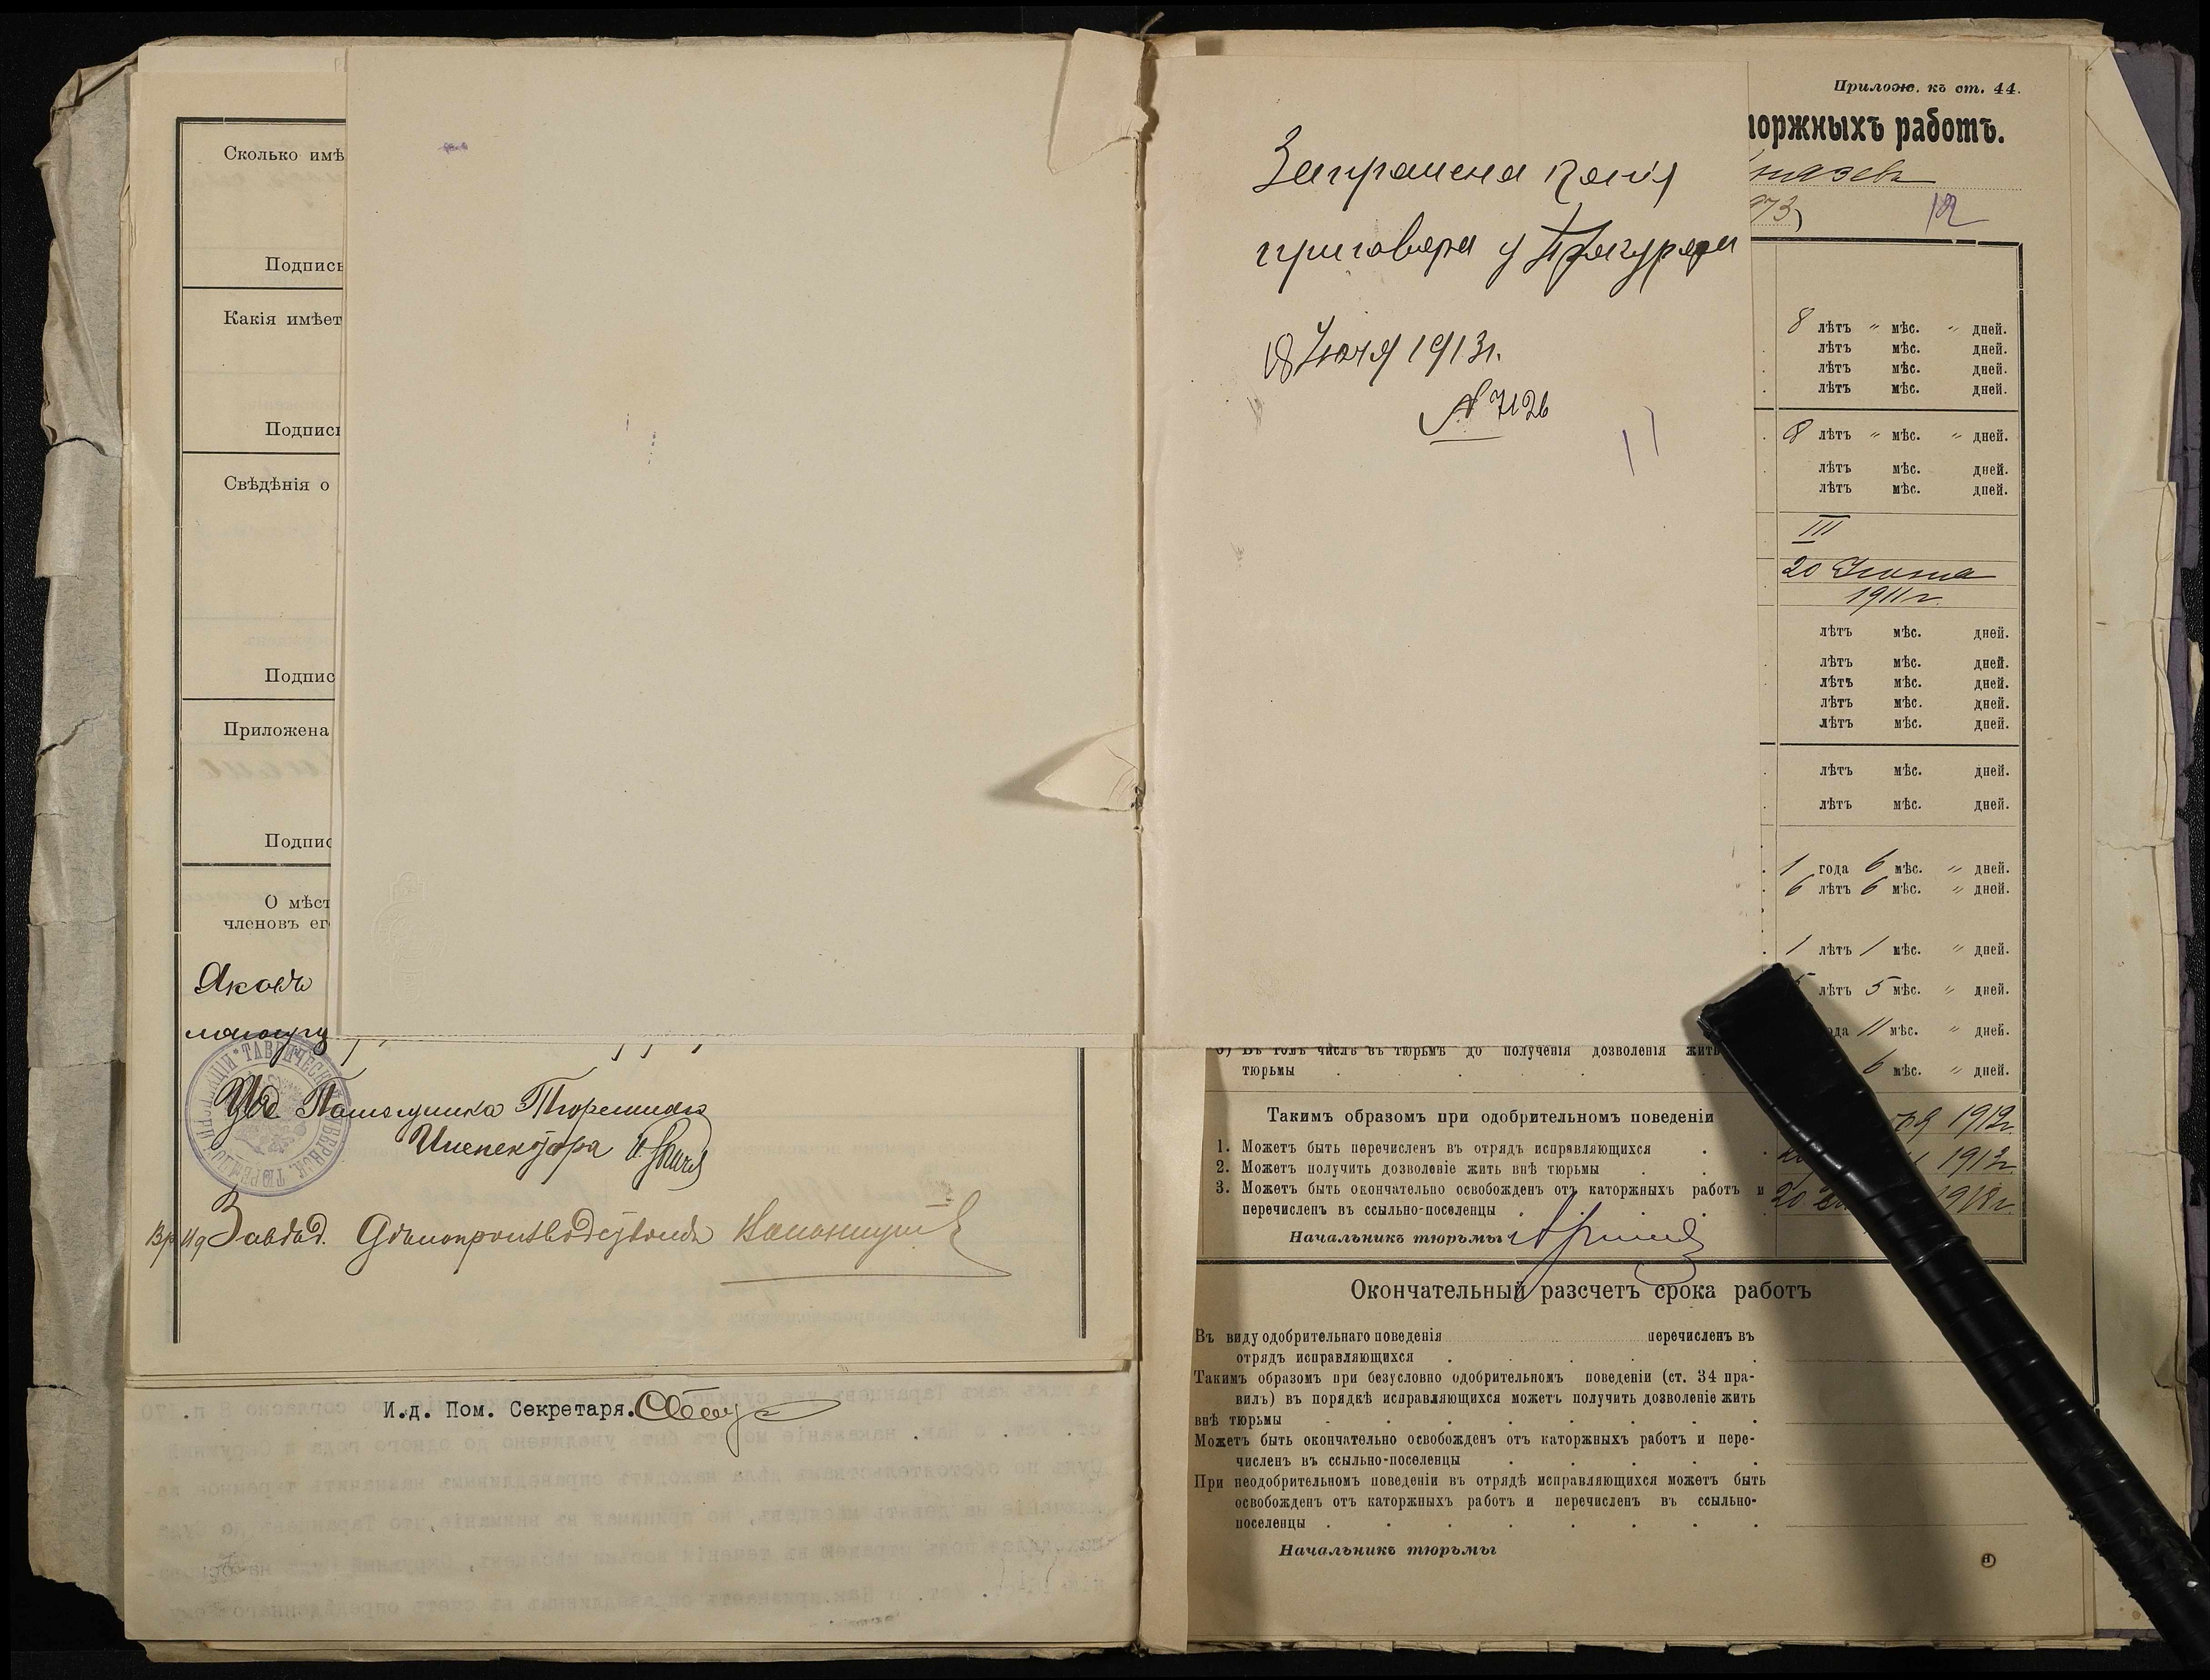 Сколько имѣ
Подпись
Какія имѣет
Подпись
Свѣдѣнія о
Подпис
Приложена
Подпис
О мѣст
членовъ ег
Яковъ
ТАВРИЧЕСК ГУБЕРНСК. ТЮРЕМНОЙ ИНСПЕКЦІИ
Помощника Тюремнаго
Инспектора
Завѣд. Дѣлопроизводствомъ
И.д. Пом. Секретаря.
Запрошена копія
приговора у Прокурора
18 Іюля 1913г.
№ 7126
11
Прилож. къ ст. 44.
торжныхъ работъ.
нязевъ
973)
12
8 лѣтъ " мѣс. " дней.
лѣтъ мѣс. дней.
лѣтъ мѣс. дней.
лѣтъ мѣс. дней.
8 лѣтъ " мѣс. " дней.
лѣтъ мѣс. дней.
лѣтъ мѣс. дней.
III
20 Іюня
1911 г.
лѣтъ мѣс. дней.
лѣтъ мѣс. дней.
лѣтъ мѣс. дней.
лѣтъ мѣс. дней.
лѣтъ мѣс. дней.
лѣтъ мѣс. дней.
лѣтъ мѣс. дней.
1 года 6 мѣс. " дней.
6 лѣтъ 6 мѣс. " дней.
1 лѣтъ 1 мѣс. " дней.
5 лѣтъ 5 мѣс. " дней.
ода 11 мѣс. " дней.
въ томъ числѣ въ тюрьмѣ до полученія дозволенія жить
тюрьмы 6 мѣс. " дней.
Такимъ образомъ при одобрительномъ поведеніи
1. Можетъ быть перечисленъ въ отрядъ исправляющихся 1912г.
2. Можетъ получить дозволеніе жить внѣ тюрьмы 1913г.
3. Можетъ быть окончательно освобожденъ отъ каторжныхъ работъ и
перечисленъ въ ссыльно-поселенцы 20 1918г.
Начальникъ тюрьмы
Окончательный разсчетъ срока работъ
Въ виду одобрительнаго поведенія перечисленъ въ
отрядъ исправляющихся
Такимъ образомъ при безусловно одобрительномъ поведеніи (ст. 34 пра-
вилъ) въ порядкѣ исправляющихся можетъ получить дозволеніе жить
внѣ тюрьмы
Можетъ быть окончательно освобожденъ отъ каторжныхъ работъ и пере-
численъ въ ссыльно-поселенцы
При неодобрительномъ поведеніи въ отрядѣ исправляющихся можетъ быть
освобожденъ отъ каторжныхъ работъ и перечисленъ въ ссыльно-
поселенцы
Начальникъ тюрьмы